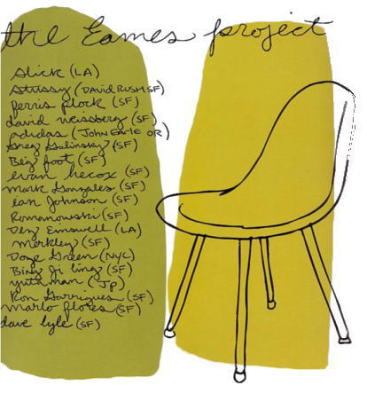 the Eames project
Slick (LA)
Stussy (DAVID RUSH SF)
ferris plock (SF)
david weissberg (SF)
adidas (JOHN EARLE OR)
Greg Galinsky (SF)
Big foot (SF)
evan hecox (SF)
mark Gonzales (SF)
Ian Johnson (SF)
Romanowski (SF)
(LA)
merkley (SF)
Doze Green (NYC)
Bing Ji ling (SF)
(JP)
Ron Garrigues (SF)
marlo flores (SF)
dave lyle (SF)